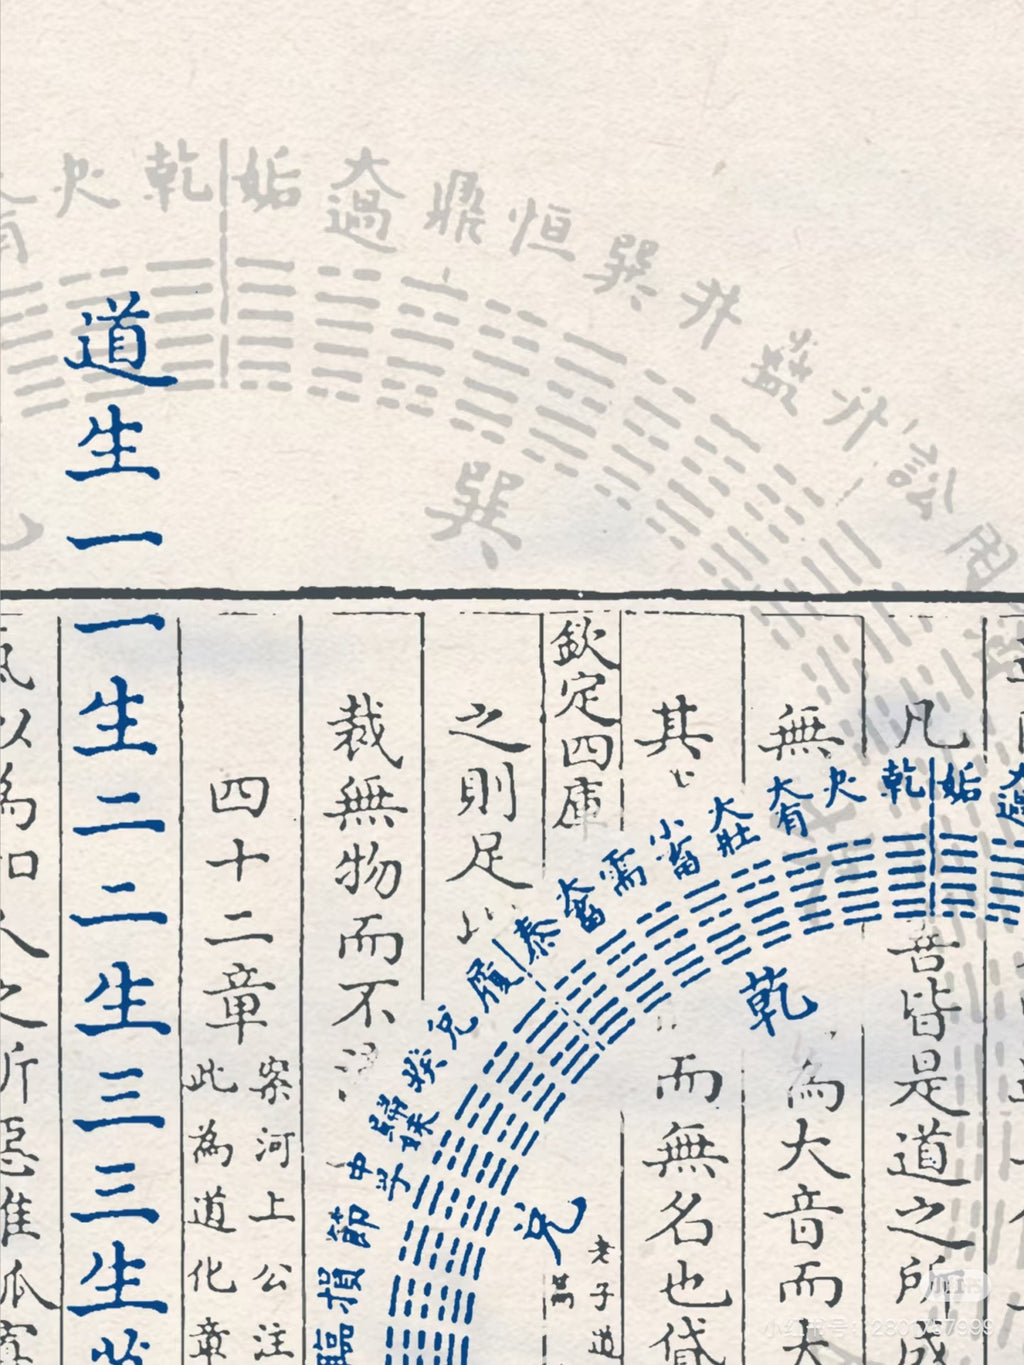 乾
姤
大過
鼎
恒
巽
井
蠱
升
訟
巽
凡
善皆是道之所
無
為大音而大
其
而無名也貸
欽定四庫
老子道
之則足以
裁無物而不
四十二章
案河上公注
此為道化章
道生一一生二二生三三生
以為和
之所惡惟孤寡
大過
姤
乾
夬
大有
大壯
小畜
需
大畜
泰
履
兌
睽
歸妹
中孚
節
損
臨
乾
兌
小红书